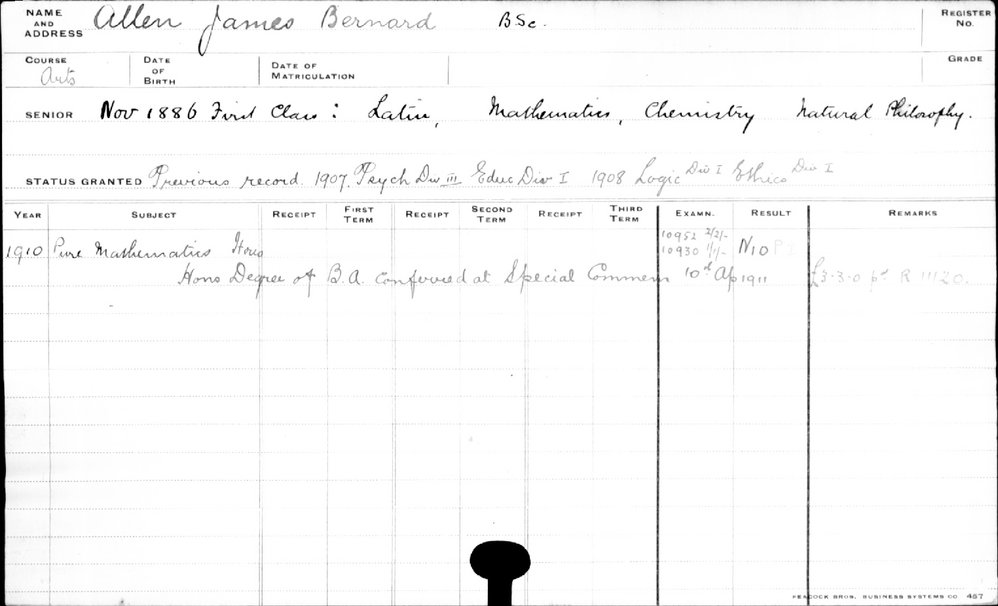 NAME AND ADDRESS Allen James Bernard BSc. REGISTER No.
COURSE Arts DATE OF BIRTH DATE OF MATRICULATION GRADE
SENIOR Nov 1886 First Class: Latin, Mathematics, Chemistry Natural Philosophy.
STATUS GRANTED Previous record. 1907. Psych Div III Educ Div I 1908 Logic Div I Ethics Div I
YEAR SUBJECT RECEIPT FIRST TERM RECEIPT SECOND TERM RECEIPT THIRD TERM EXAMN. RESULT REMARKS
10952 2/2/-
1910 Pure Mathematics Hons 10930 1/1/- N10
Hons Degree of B.A. conferred at Special Commem 10th Ap 1911 £3-3-0 pd R 11120.
PEACOCK BROS. BUSINESS SYSTEMS CO. 457